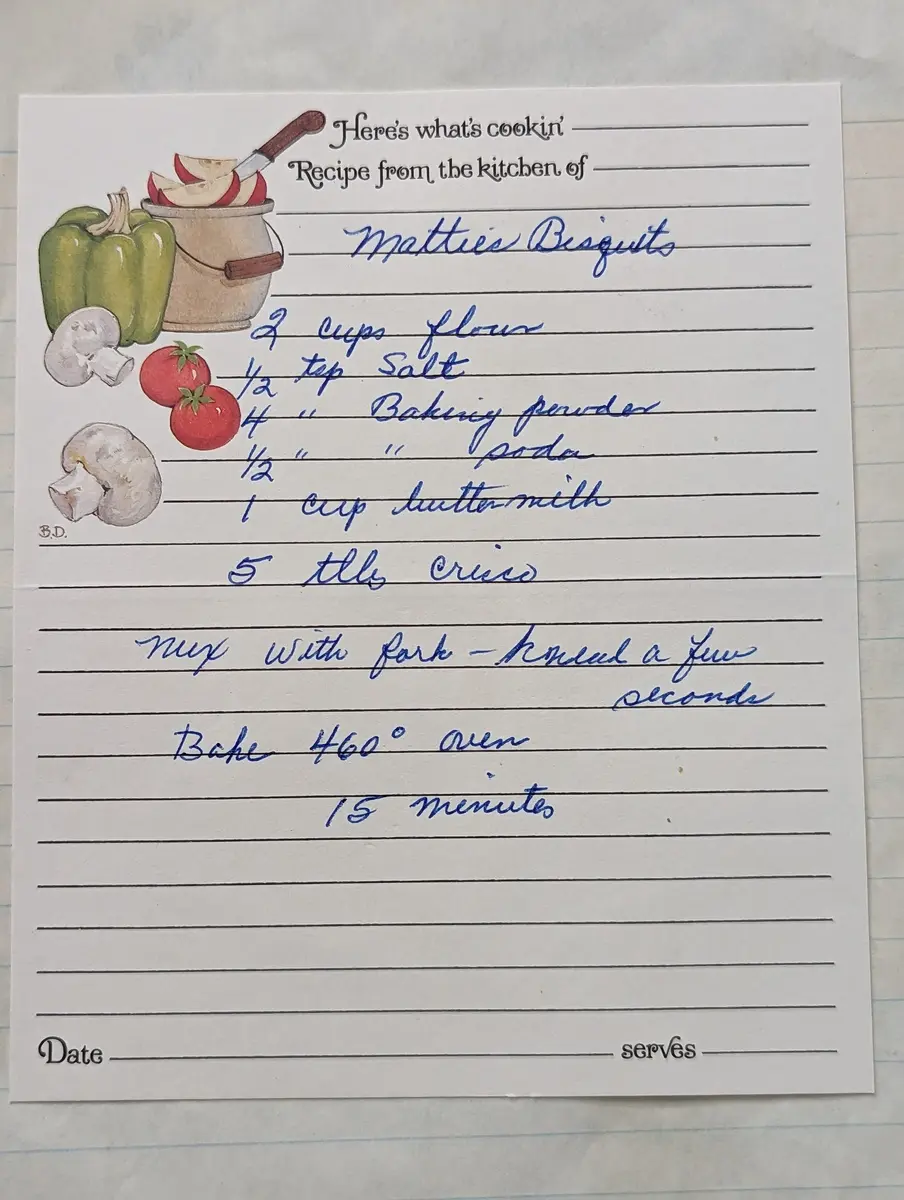 Here's what's cookin'
Recipe from the kitchen of
Mattie's Bisquits
2 cups flour
1/2 tsp Salt
4 " Baking powder
1/2 " " soda
1 cup buttermilk
5 tbls crisco
Mix with fork – knead a few
seconds
Bake 460° oven
15 minutes
B.D.
Date
serves